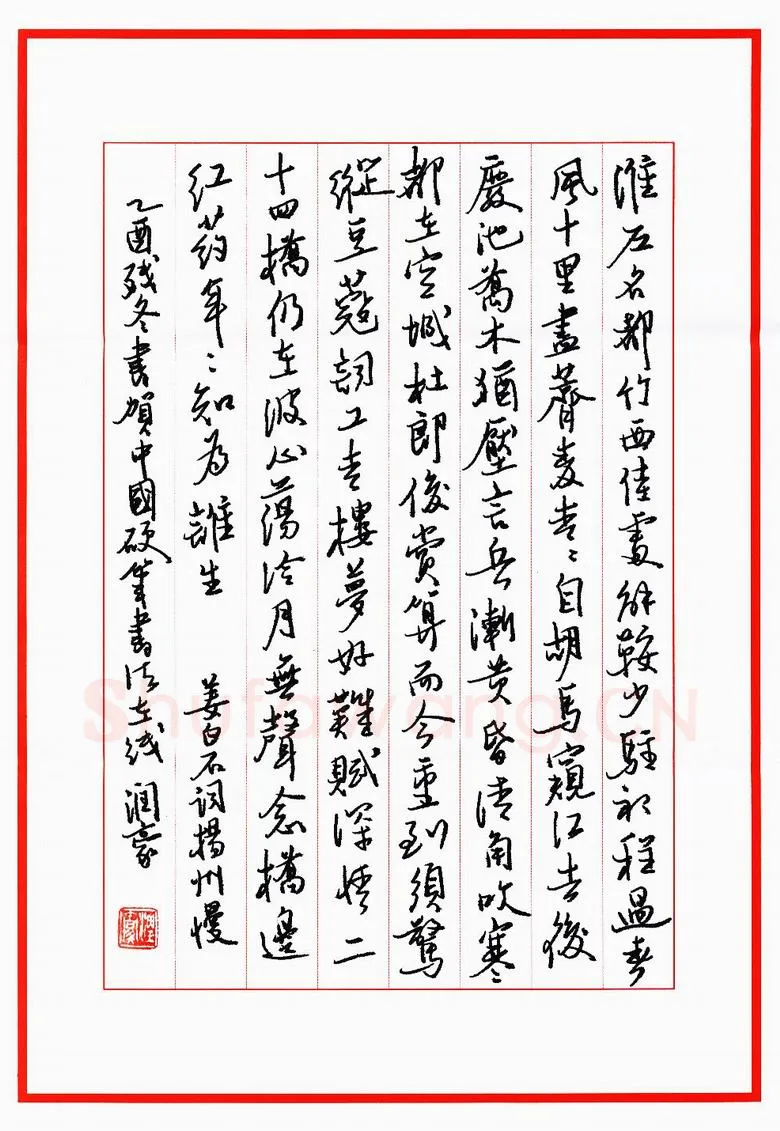 淮左名都竹西佳處解鞍少駐初程過春
風十里盡薺麥青〻自胡馬窺江去後
廢池喬木猶壓言兵漸黃昏清角吹寒
都在空城杜郎俊賞算而今重到須驚
縱豆蔻詞工青樓夢好難賦深情二
十四橋仍在波心蕩冷月無聲念橋邊
红药年〻知為誰生 姜白石词揚州慢
乙酉残冬書賀中國硬筆書法在线 润豪
Shufawang.CN